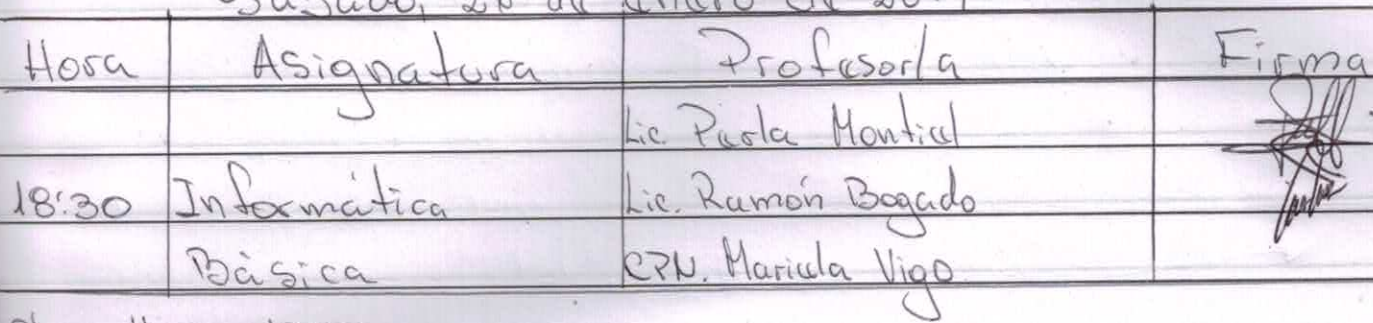 Hora Asignatura Profesor/a Firma
Lic. Paola Montiel
18:30 Informática Lic. Ramón Bogado
Básica CPN. Mariela Vigo